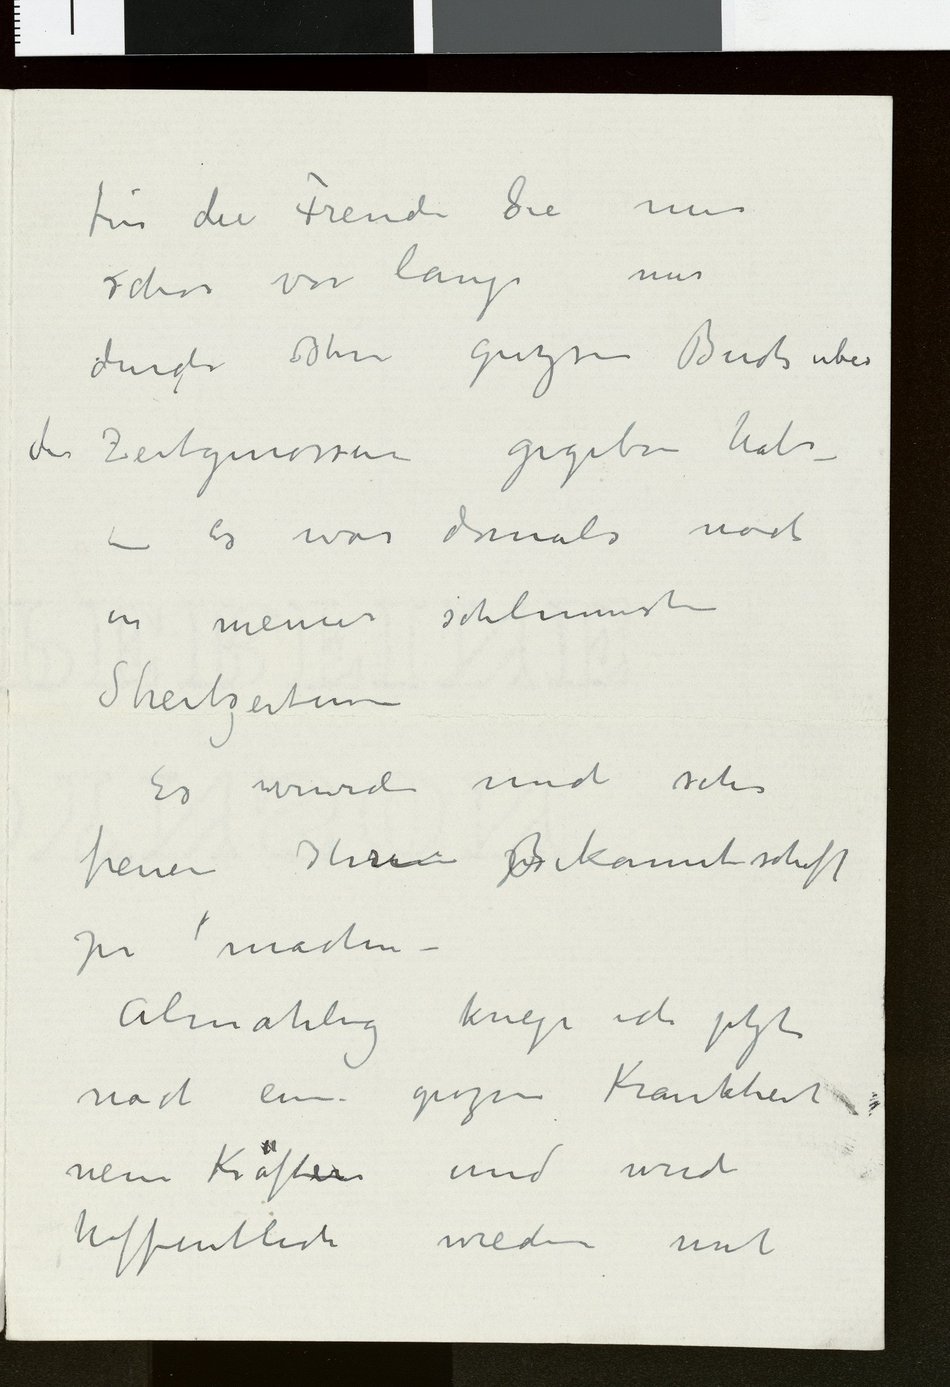 für die Freude Sie mir
schon vor lange mir
durch Ihr grozsen Buch über
die Zeitgenossen gegeben habe –
– Es war damals noch
in meiner schlimmsten
Streitzeiten
Es wurde mich sehr
freuen Ihre Bekanntschaft
zu machen –
Almahlig kriege ich jetzt
nach eine grozsen Krankheit
neue Kräfte und werde
hoffentlich wieder mit